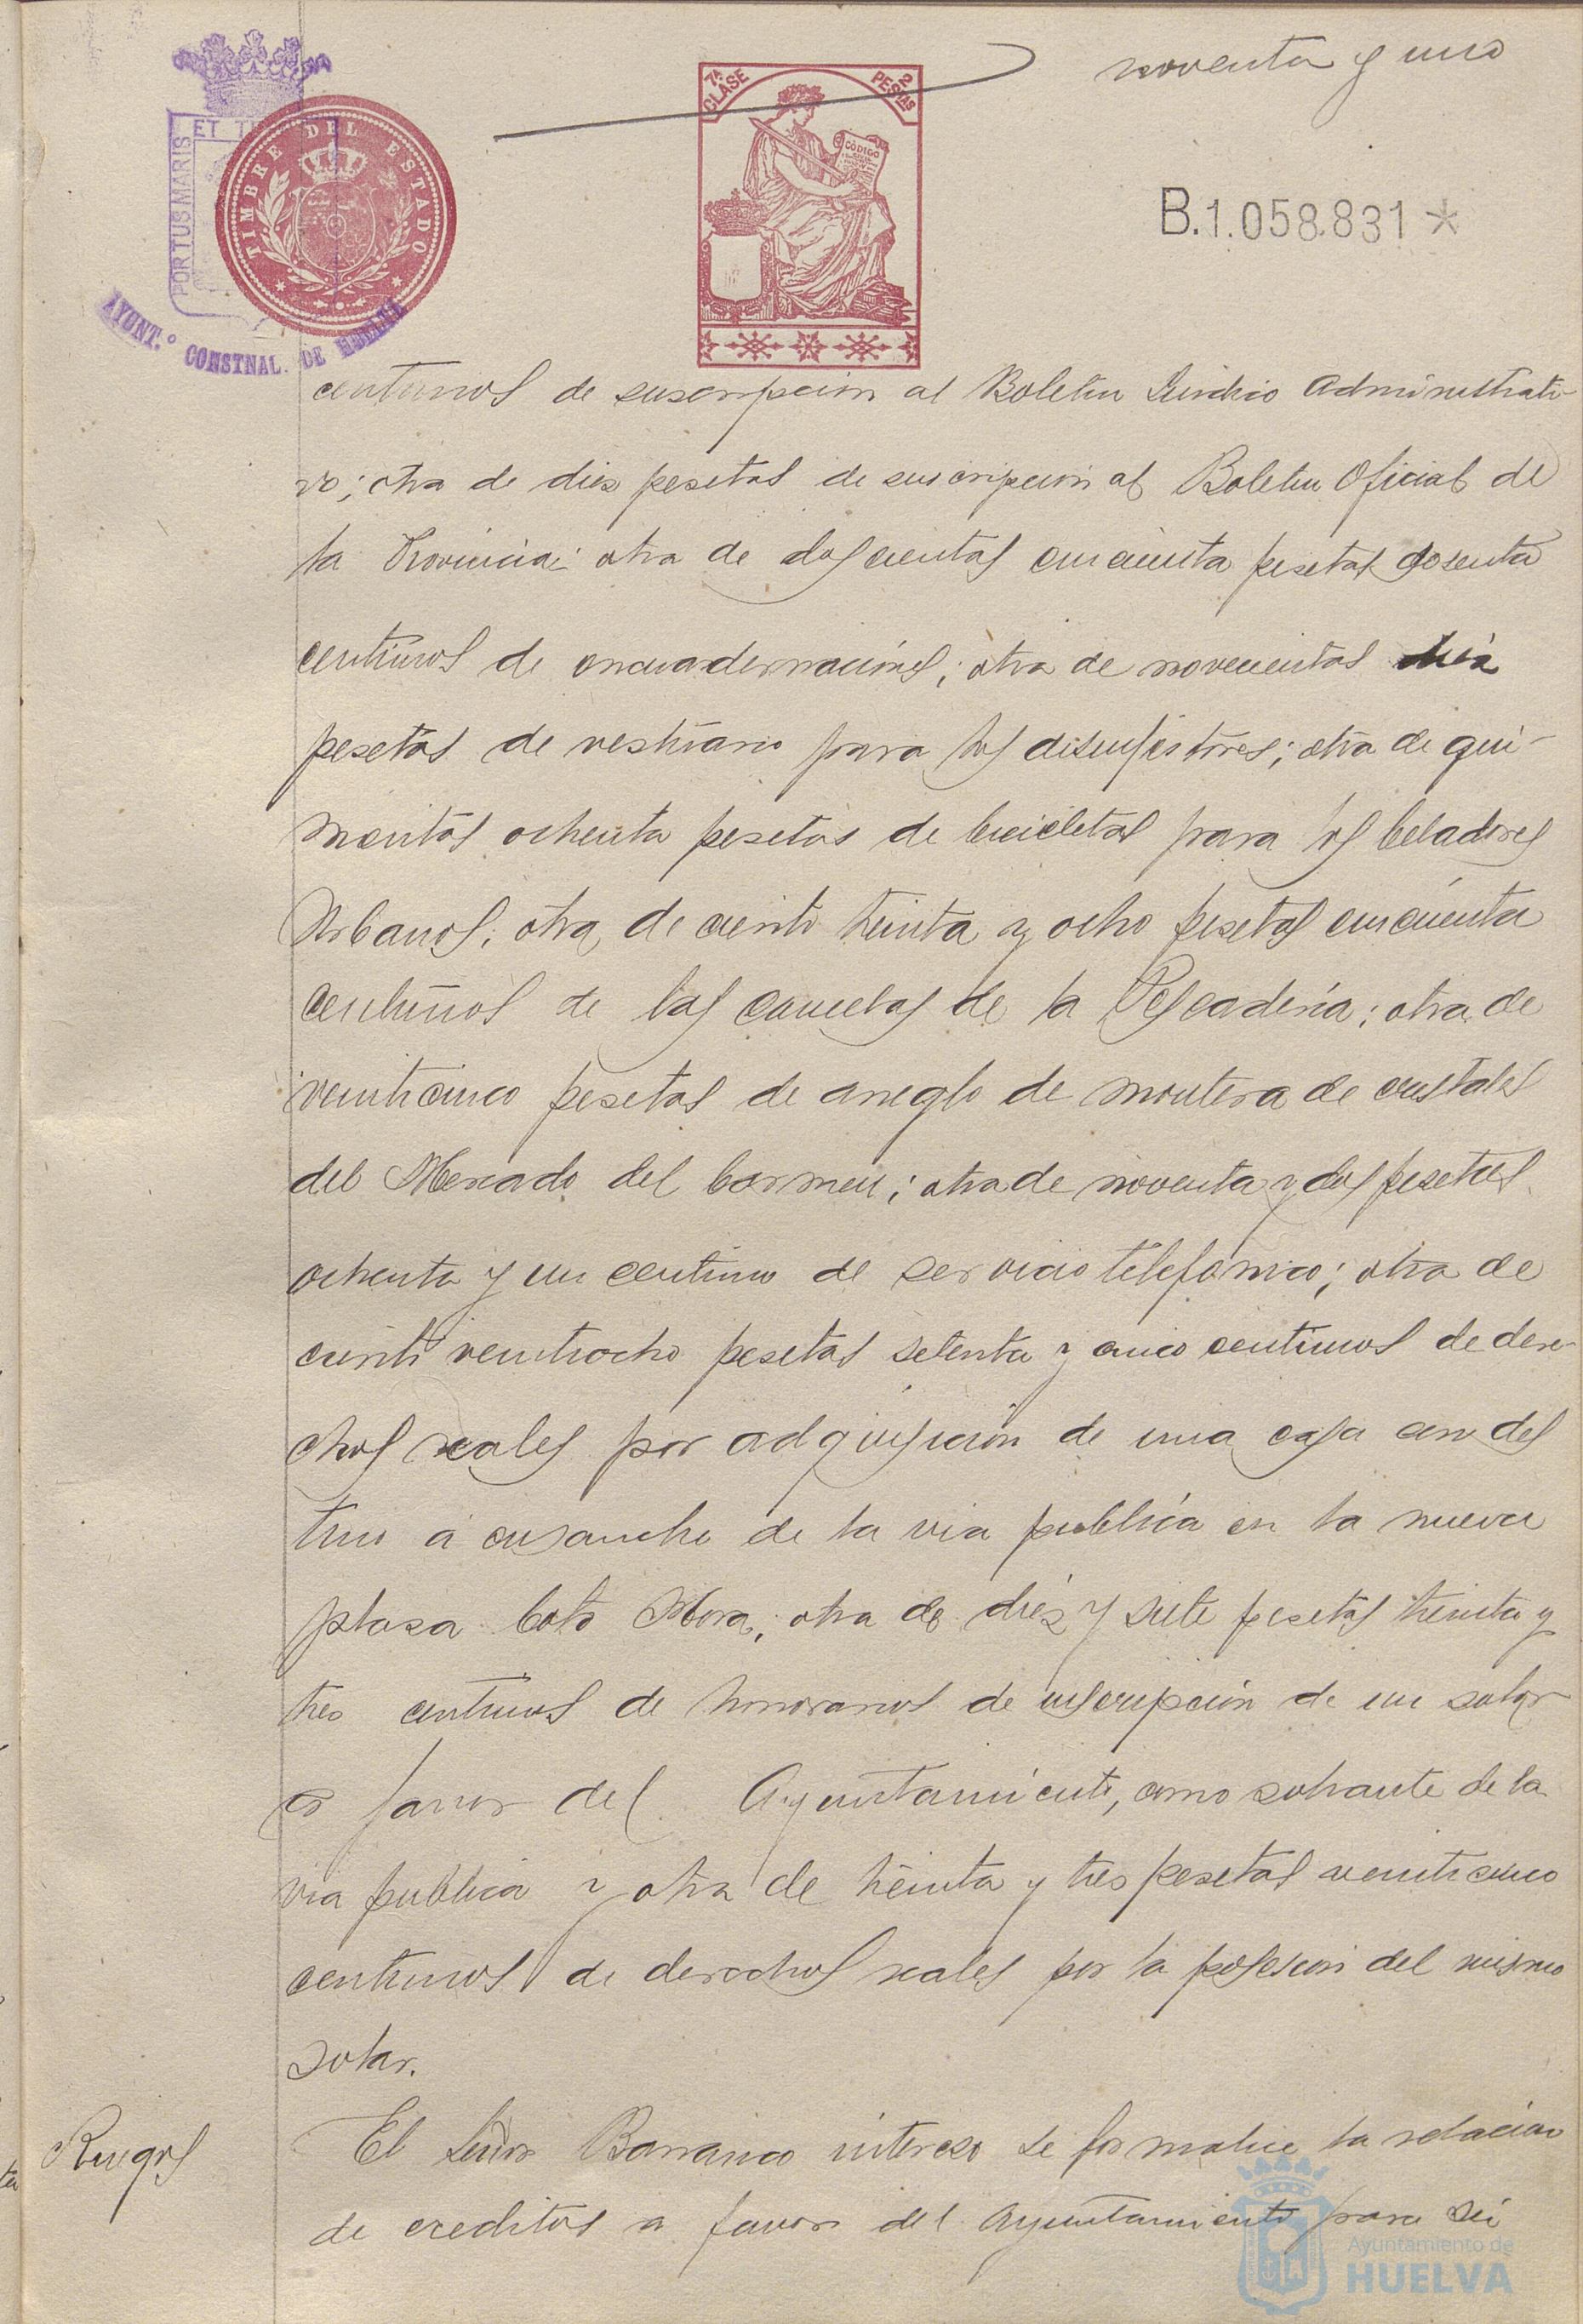 noventa y uno
7ª CLASE
2 PESETAS
CÓDIGO
TIMBRE DEL ESTADO
PORTUS MARIS ET T
AYUNT.º CONSTNAL. DE HUELVA
B.1.058.831*
centimos de suscripcion al Boletin Juridico Administrati-
vo; otra de dies pesetas de suscripcion al Boletin Oficial de
la Provincia; otra de doscientas cincuenta pesetas sesenta
centimos de encuadernaciones; otra de novecientas
pesetas de vestuario para los disinfectores; otra de qui-
nientas ochenta pesetas de bicicletas para los Celadores
Urbanos; otra de ciento treinta y ocho pesetas cincuenta
centimos de las canceelas de la Pescaderia; otra de
veinticinco pesetas de arreglo de montera de cristales
del Mercado del Carmen; otra de noventa y dos pesetas
ochenta y un centimo de servicio telefonico; otra de
ciento veintiocho pesetas setenta y cinco centimos de dere-
chos reales por adquisicion de una casa con des
tino á ensanche de la via publica en la nueva
plasa Coto Mora; otra de dies y siete pesetas treinta y
tres centimos de honorarios de inscripción de un solar
a favor del Ayuntamiento, como sobrante de la
via publica y otra de treinta y tres pesetas veinticinco
centimos de derechos reales por la posesion del mismo
solar.
Ruegos
El Señor Barranco intereso se formalice la relacion
de creditos a favor del Ayuntamiento para su
Ayuntamiento de
HUELVA